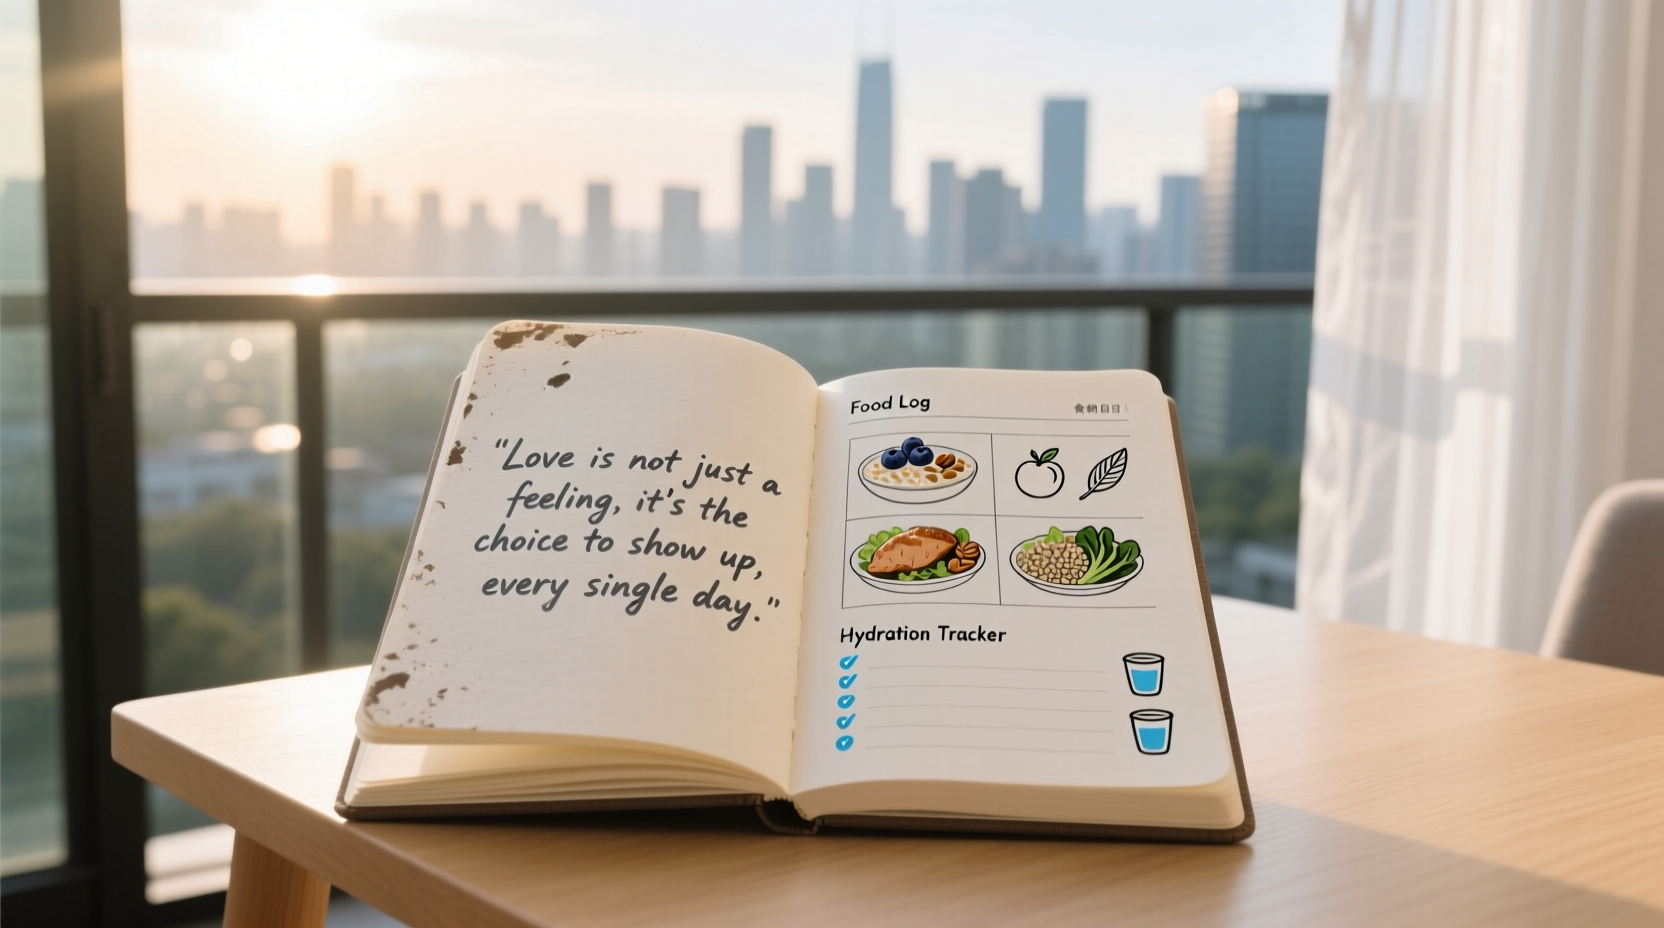 "Love is not just a
feeling, it's the
choice to show up,
every single day."
Food Log
食物日日
Hydration Tracker